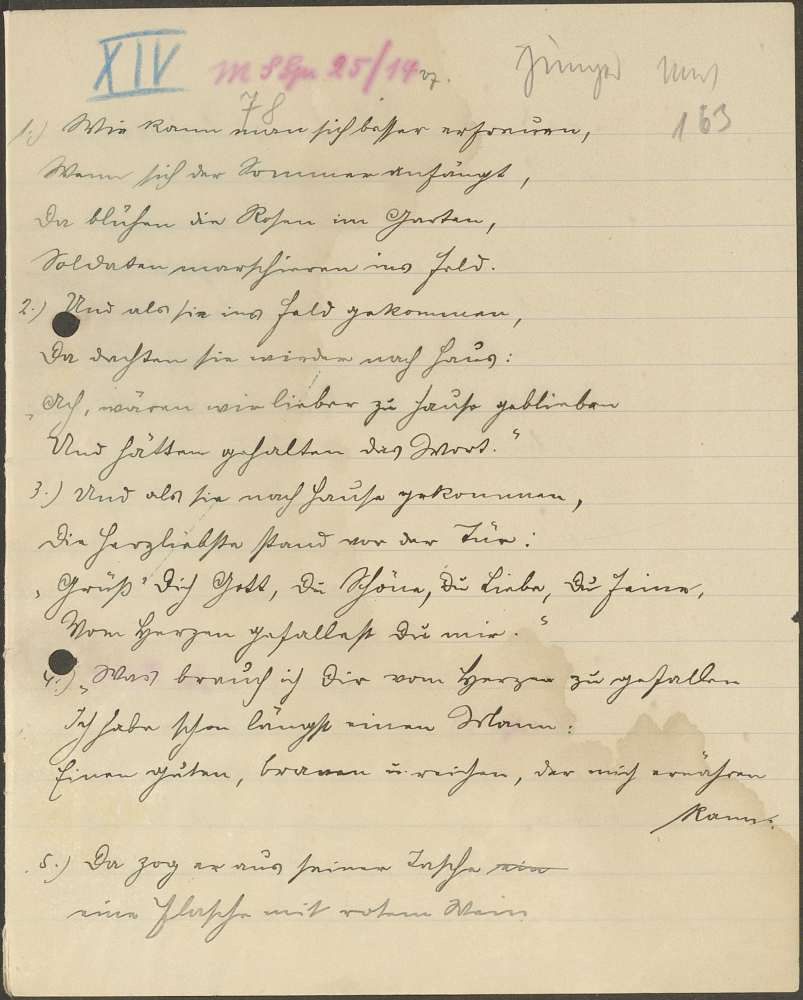 XIV
78
163
1.) Wie kann man sich besser erfreuen,
Wenn sich der Sommer anfängt,
Da blühen die Rosen im Garten,
Soldaten marschieren ins Feld.
2.) Und als sie ins Feld gekommen,
Da dachten sie wieder nach Haus:
„Ach, wären wir lieber zu Hause geblieben
Und hätten gehalten das Wort."
3.) Und als sie nach Hause gekommen,
Die Herzliebste stand vor der Tür:
„Grüß' Dich Gott, Du Schöne, Du Liebe, Du Feine,
Vom Herzen gefallest Du mir."
4.) „Was brauch ich Dir vom Herzen zu gefallen
Ich habe schon längst einen Mann:
Einen guten, braven u. reichen, der mich ernähren
kann.
5.) Da zog er aus seiner Tasche ein
eine Flasche mit rotem Wein